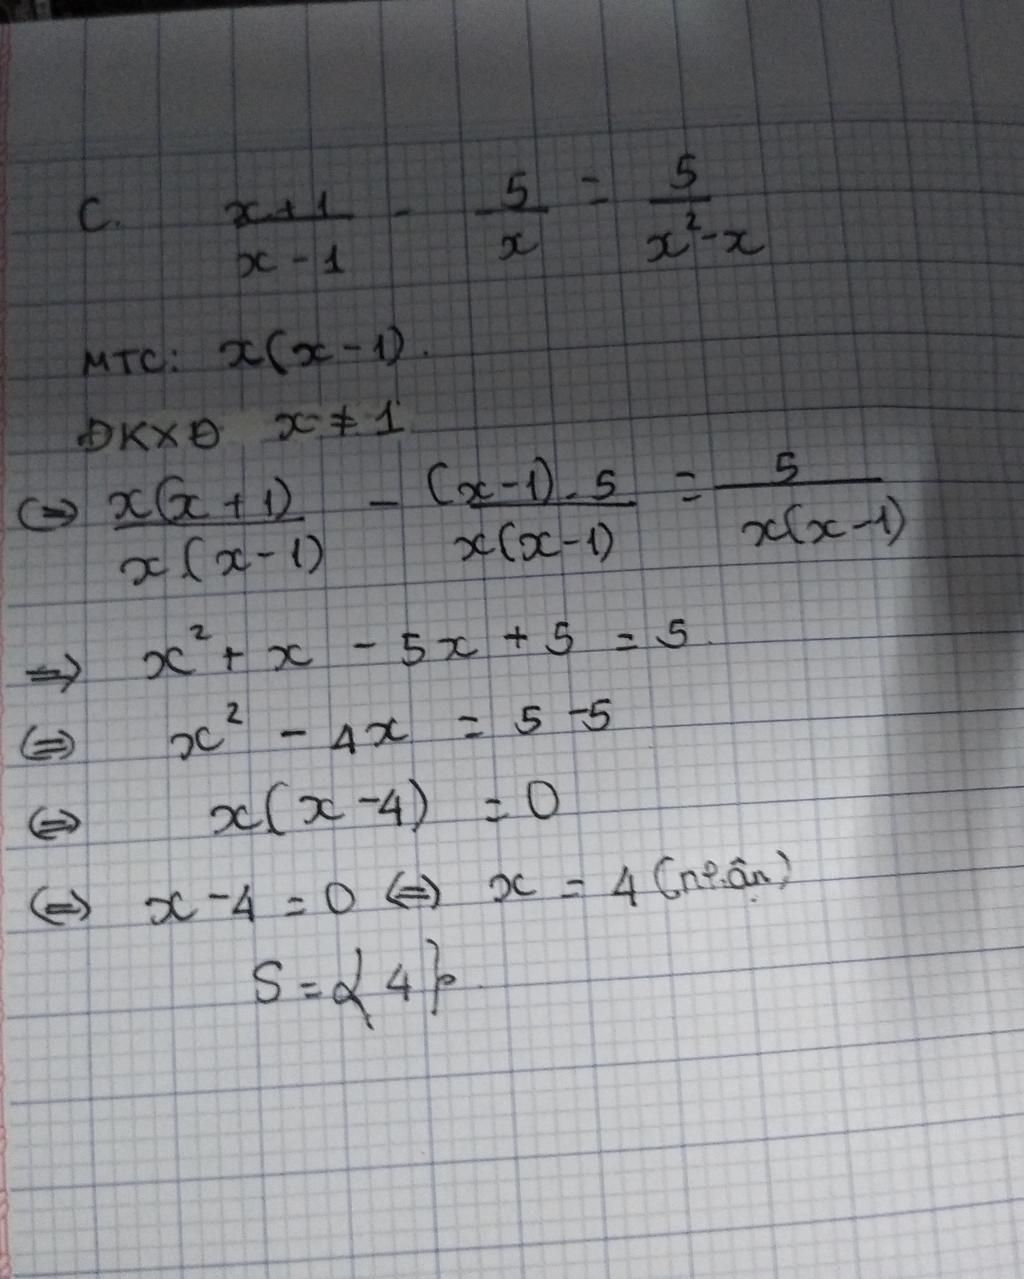 C. \frac{x+1}{x-1} - \frac{5}{x} = \frac{5}{x^2-x}
MTC: x(x-1).
ĐKXĐ x ≠ 1
⇔ \frac{x(x+1)}{x(x-1)} - \frac{(x-1).5}{x(x-1)} = \frac{5}{x(x-1)}
⇒ x² + x - 5x + 5 = 5.
⇔ x² - 4x = 5 - 5
⇔ x(x-4) = 0
⇔ x-4 = 0 ⇔ x = 4 (nhận)
S = {4}.